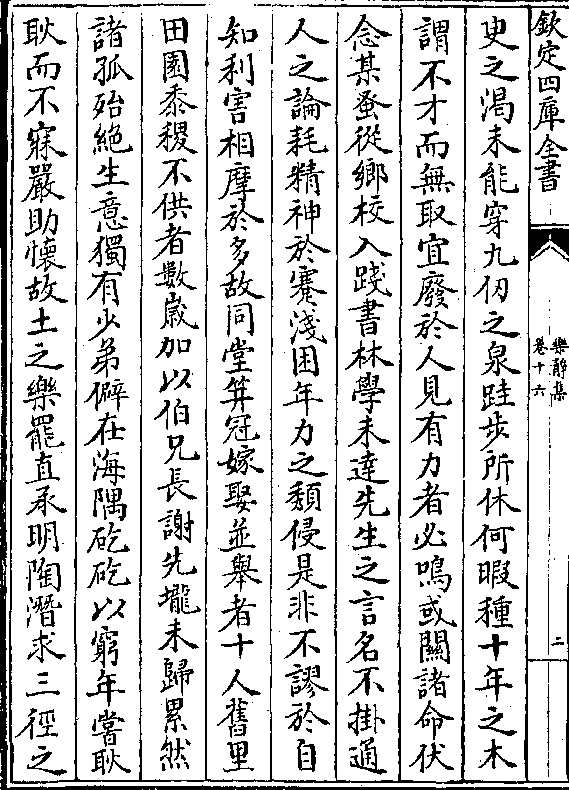 欽定四庫全書
樂静集
卷十六
二
叓之渴未能穿九仞之泉跬步所休何暇種十年之木
謂不才而無取宜廢於人見有力者必鳴或關諸命伏
念某蚤從鄉校入踐書林學未達先生之言名不掛通
人之論耗精神於蹇淺困年力之頽侵是非不謬於自
知利害相摩於多故同堂筓冠嫁娶並舉者十人舊里
田園黍稷不供者數歲加以伯兄長謝先壠未歸累然
諸孤殆絶生意獨有少弟僻在海隅矻矻以窮年嘗耿
耿而不寐嚴助懷故土之樂罷直承明陶潛求三徑之